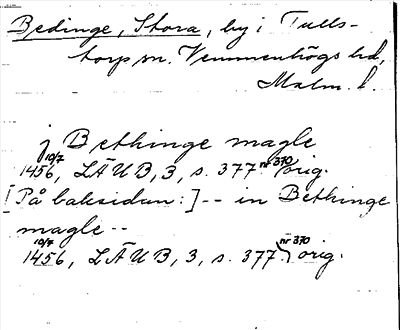 Bedinge, Stora, by i Tulls-
torp sn. Vemmenhögs hd,
Malm. l.
j Bethinge magle
10/7 1456, LÄUB, 3, s. 377 nr 370 orig.
[På baksidan:] -- in Bethinge
magle --
10/7 1456, LÄUB, 3, s. 377 nr 370 orig.